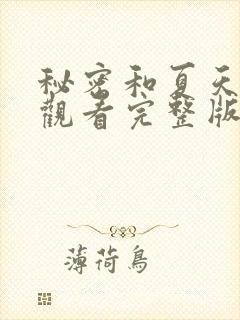 秘密和夏天
觀看完整版
薄荷鳥